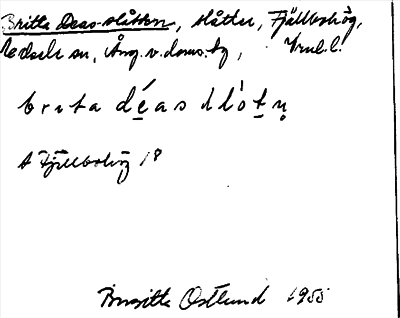 Britta Deas-slåtten, slåtter, Fjällbohög,
Nedsele sn, Ång. v. doms. tg,
brita déas slòtṇ
A Fjällbohög 18
Birgitta Östlund 1955